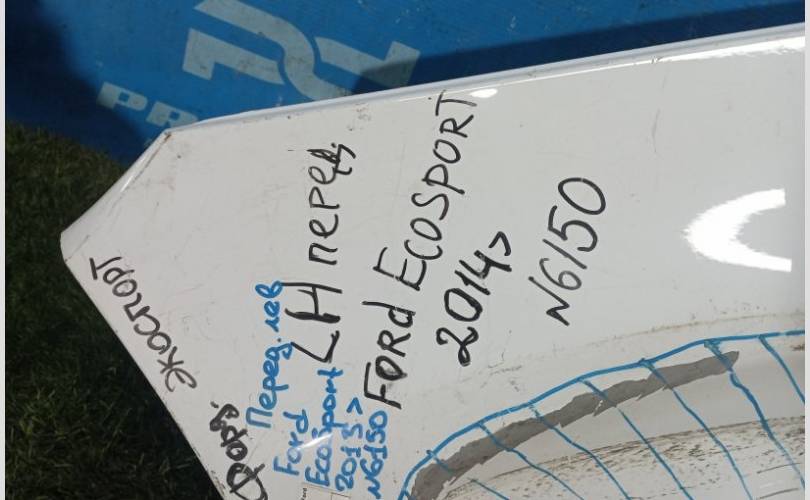 Форд.
ЭКОСПОРТ
Перед. лев
Ford
EcoSport
2013>
N6150
LH перед
FORD ECOSPORT
2014>
N6150
PR